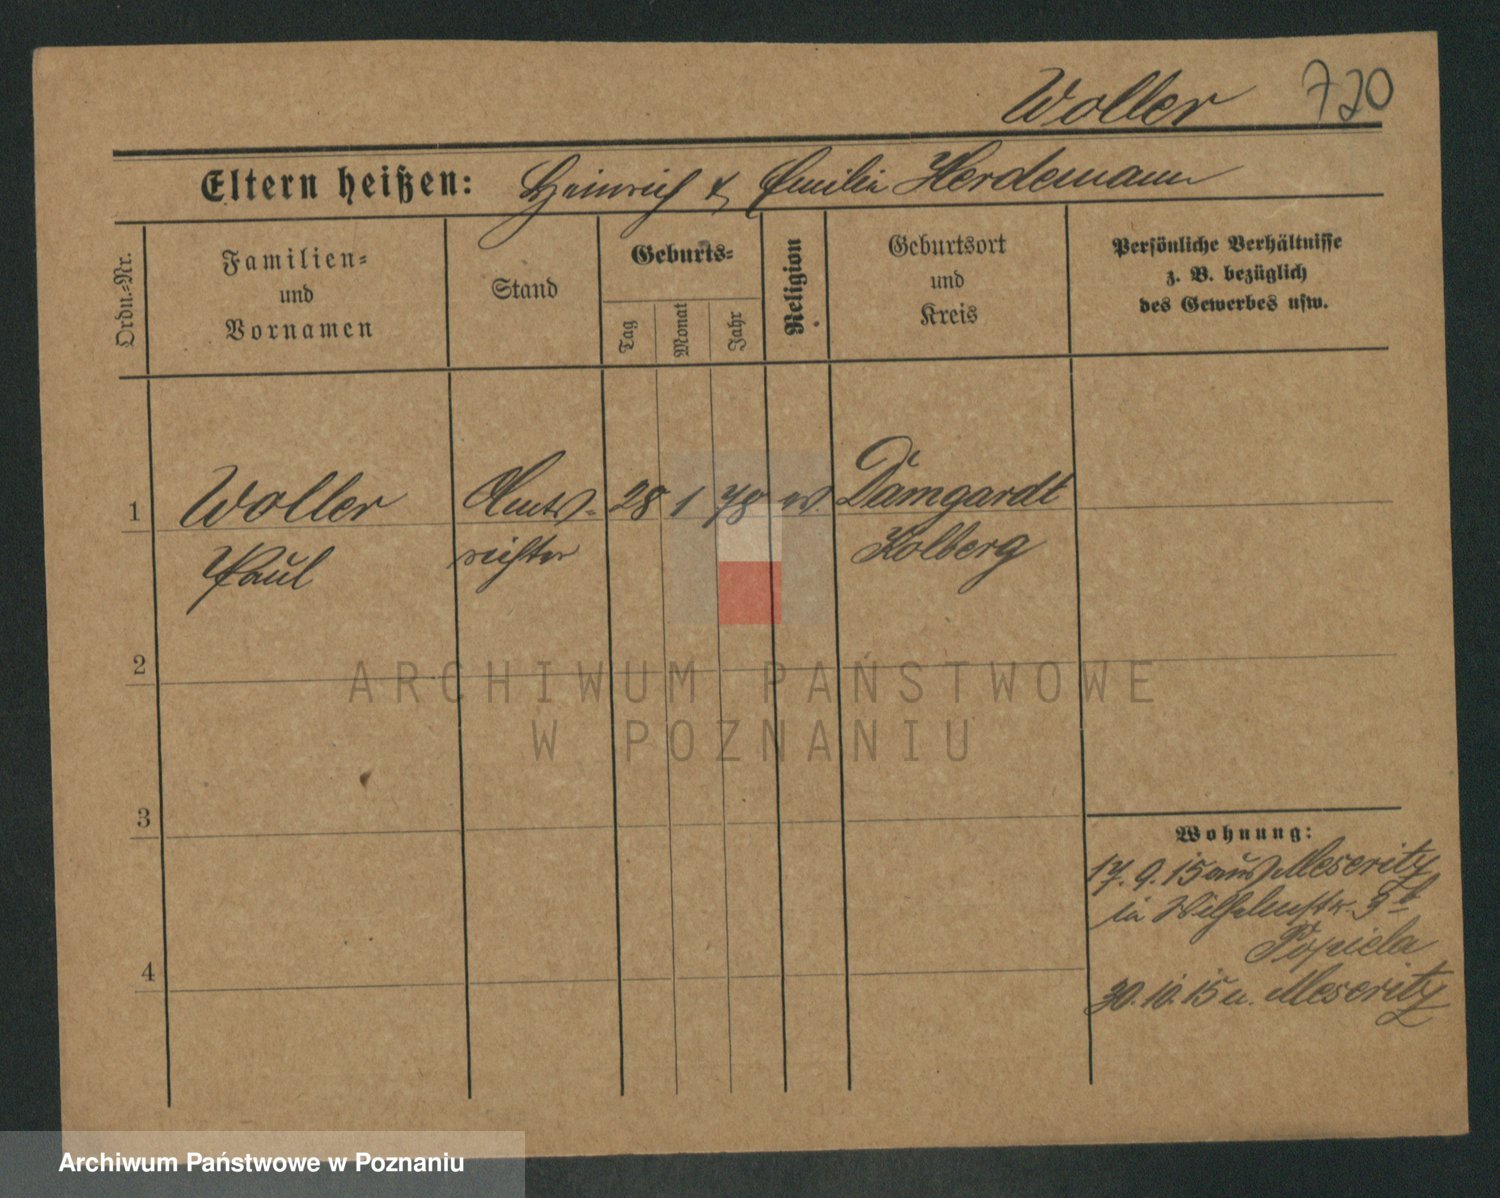 Woller 720
Eltern heißen: Heinrich & Emilie Herdemann
Ordn.-Nr.
Familien-
und
Vornamen
Stand
Geburts-
Tag
Monat
Jahr
Religion
Geburtsort
und
Kreis
Persönliche Verhältnisse
z. B. bezüglich
des Gewerbes usw.
1 Woller Amts- 28 1 78 ev. Damgardt
Paul richter Kolberg
2
3
4
Wohnung:
17.9.15 aus Meseritz
in Wilhelmstr.
Popiela
30.10.15 n. Meseritz
ARCHIWUM PAŃSTWOWE
W POZNANIU
Archiwum Państwowe w Poznaniu